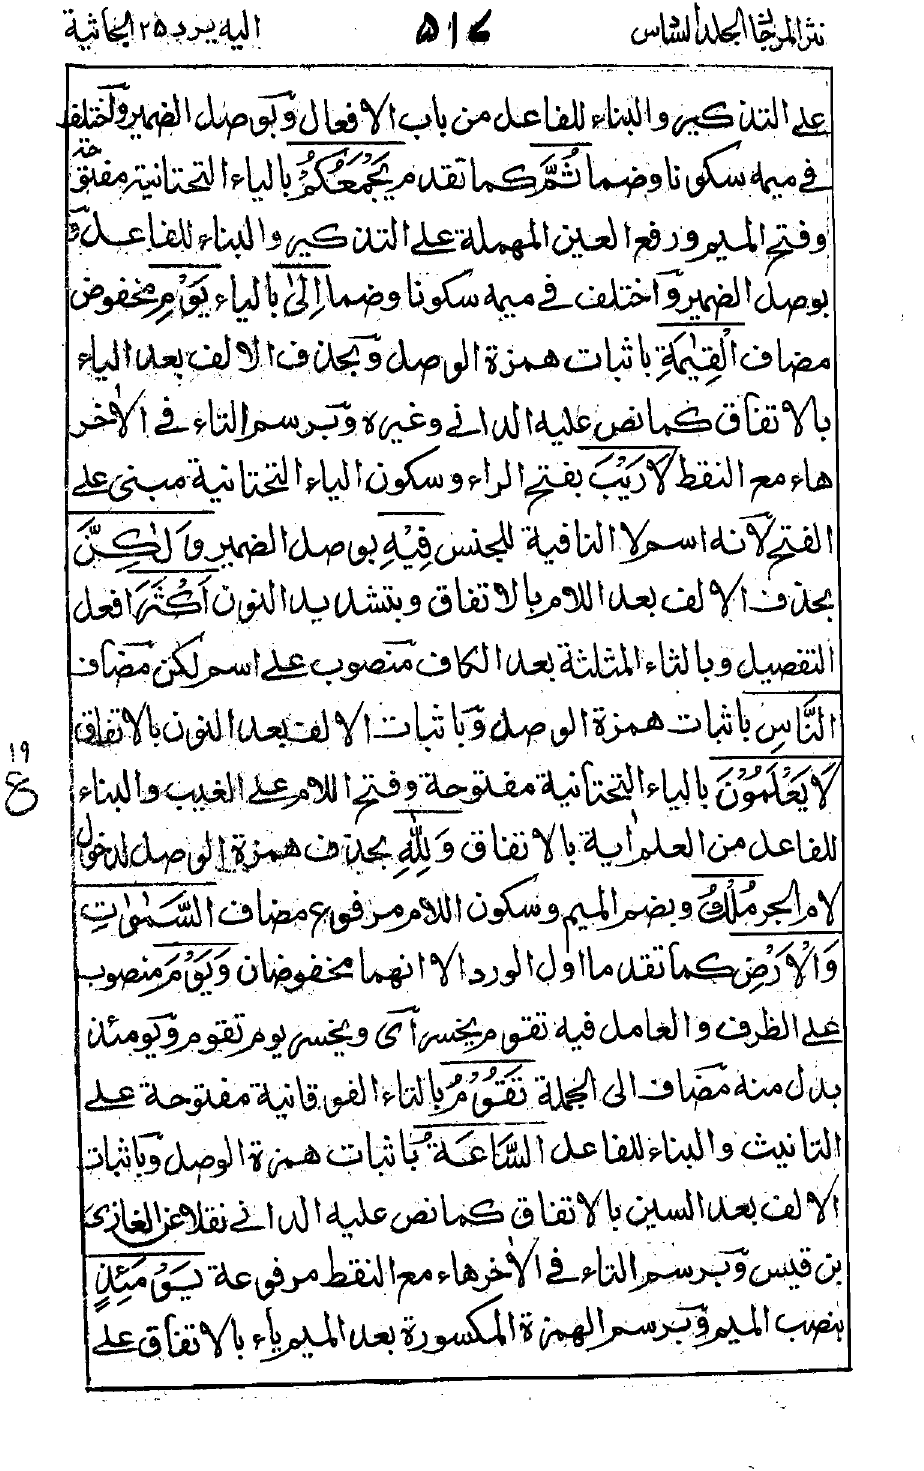 نثر المرجان المجلد السادس ۵۱۶ اليه يرد ۲۵ الجاثية
على التذكير والبناء للفاعل من باب الافعال وبوصل الضمير واختلف
في ميمه سكونا وضما ثُمَّ كما تقدم يَجْمَعُكُمْ بالياء التحتانية مفتوحة
وفتح الميم ورفع العين المهملة على التذكير والبناء للفاعل و
بوصل الضمير واختلف في ميمه سكونا وضما إِلىٰ بالياء يَوْمِ مخفوض
مضاف الْقِيٰمَةِ باثبات همزة الوصل وبحذف الالف بعد الياء
بالاتفاق كما نص عليه الداني وغيره وبرسم التاء في الاٰخر
هاء مع النقط لَا رَيْبَ بفتح الراء وسكون الياء التحتانية مبنى على
الفتح لانه اسم لا النافية للجنس فِيْهِ بوصل الضمير وَلٰكِنَّ
بحذف الالف بعد اللام بالاتفاق وبتشديد النون اَكْثَرَ افعل
التفضيل وبالثاء المثلثة بعد الكاف منصوب على اسم لكن مضاف
النَّاسِ باثبات همزة الوصل وباثبات الالف بعد النون بالاتفاق
لَا يَعْلَمُوْنَ بالياء التحتانية مفتوحة وفتح اللام على الغيب والبناء
۱۹
ع
للفاعل من العلم اٰية بالاتفاق وَلِلّٰهِ بحذف همزة الوصل لدخول
لام الجر مُلْكُ وبضم الميم وسكون اللام مرفوع مضاف السَّمٰوٰتِ
وَالْاَرْضِ كما تقدما اول الورد الا انهما مخفوضان وَيَوْمَ منصوب
على الظرف والعامل فيه تقوم يخسر اى ويخسر يوم تقوم ويومئذ
بدل منه مضاف الى الجملة تَقُوْمُ بالتاء الفوقانية مفتوحة على
التانيث والبناء للفاعل السَّاعَةُ باثبات همزة الوصل وباثبات
الالف بعد السين بالاتفاق كما نص عليه الداني نقلا عن الغازى
بن قيس وبرسم التاء في الاٰخر هاء مع النقط مرفوعة يَوْمَئِذٍ
بنصب الميم وبرسم الهمزة المكسورة بعد الميم ياء بالاتفاق على